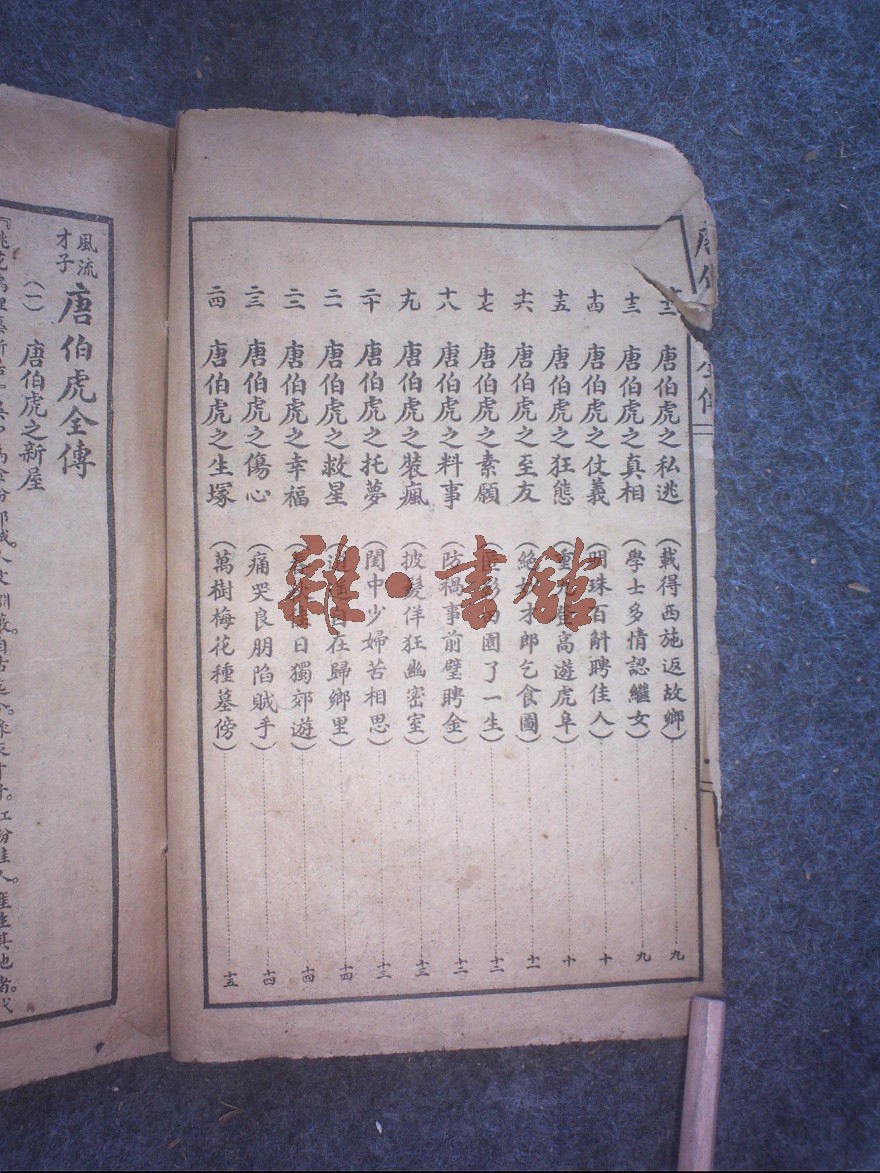 十二 唐伯虎之私逃 （載得西施返故鄉） 九
十三 唐伯虎之真相 （學士多情認繼女） 九
十四 唐伯虎之仗義 （明珠百斛聘佳人） 十
十五 唐伯虎之狂態 （重 高遊虎阜） 十
十六 唐伯虎之至友 （絕 才郎乞食圖） 十一
十七 唐伯虎之素願 （ 圖了一生） 十二
十八 唐伯虎之料事 （防禍事前璧聘金） 十二
十九 唐伯虎之裝瘋 （披髮佯狂幽密室） 十三
二十 唐伯虎之托夢 （閨中少婦苦相思） 十三
二一 唐伯虎之救星 （逍遙自在歸鄉里） 十四
二二 唐伯虎之幸福 （ 日獨郊遊） 十四
二三 唐伯虎之傷心 （痛哭良朋陷賊手） 十四
二四 唐伯虎之生塚 （萬樹梅花種墓傍） 十五
風流才子 唐伯虎全傳
（一） 唐伯虎之新屋
雜·書館